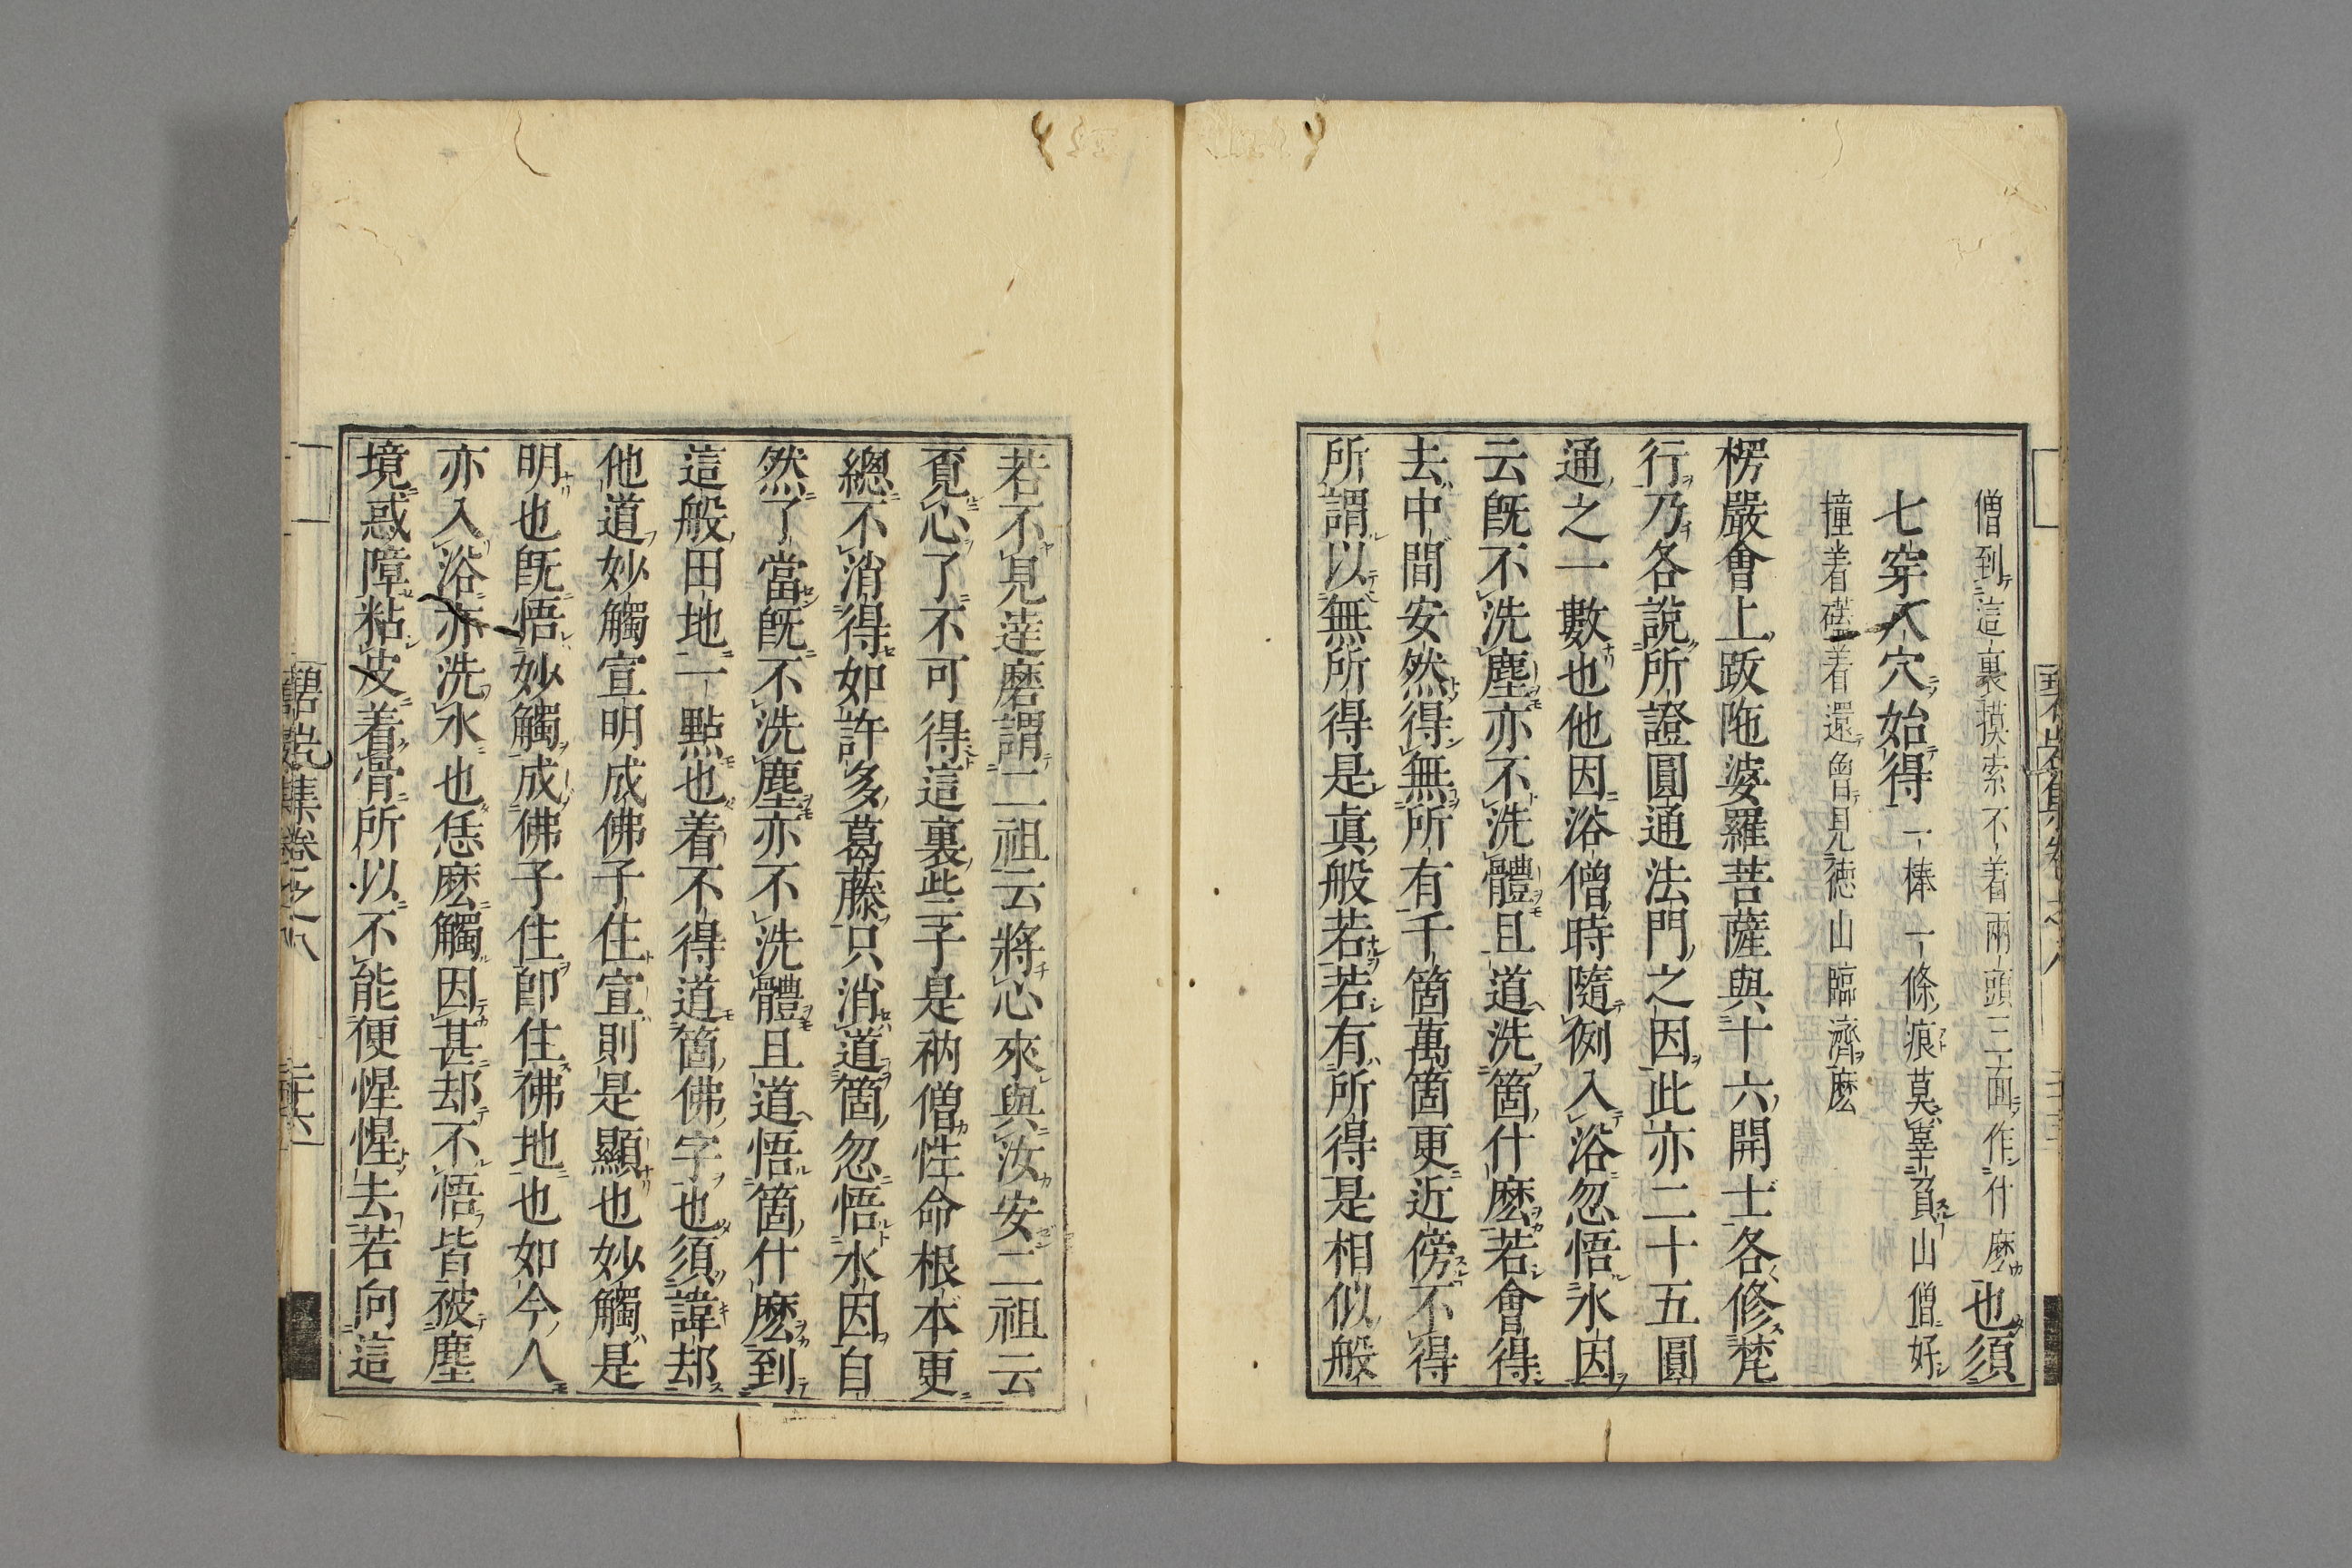 僧到這裏摸索不着兩頭三面作什麽也須
七穿八穴始得一棒一條痕莫辜負山僧好
撞着磕着還曾見德山臨濟麽
楞嚴會上跋陁婆羅菩薩與十六開士各修梵
行乃各說所證圓通法門之因此亦二十五圓
通之一數也他因浴僧時隨例入浴忽悟水因
云既不洗塵亦不洗體且道洗箇什麽若會得
去中間安然得無所有千箇萬箇更近傍不得
所謂以無所得是眞般若若有所得是相似般
若不見達磨謂二祖云將心來與汝安二祖云
覓心了不可得這裏些子是衲僧性命根本更
總不消得如許多葛藤只消道箇忽悟水因自
然了當既不洗塵亦不洗體且道悟箇什麽到
這般田地一點也着不得道箇佛字也須諱却
他道妙觸宣明成佛子住宣則是顯也妙觸是
明也既悟妙觸成佛子住卽住佛地也如今人
亦入浴亦洗水也恁麽觸因甚却不悟皆被塵
境惑障粘皮着骨所以不能便惺惺去若向這